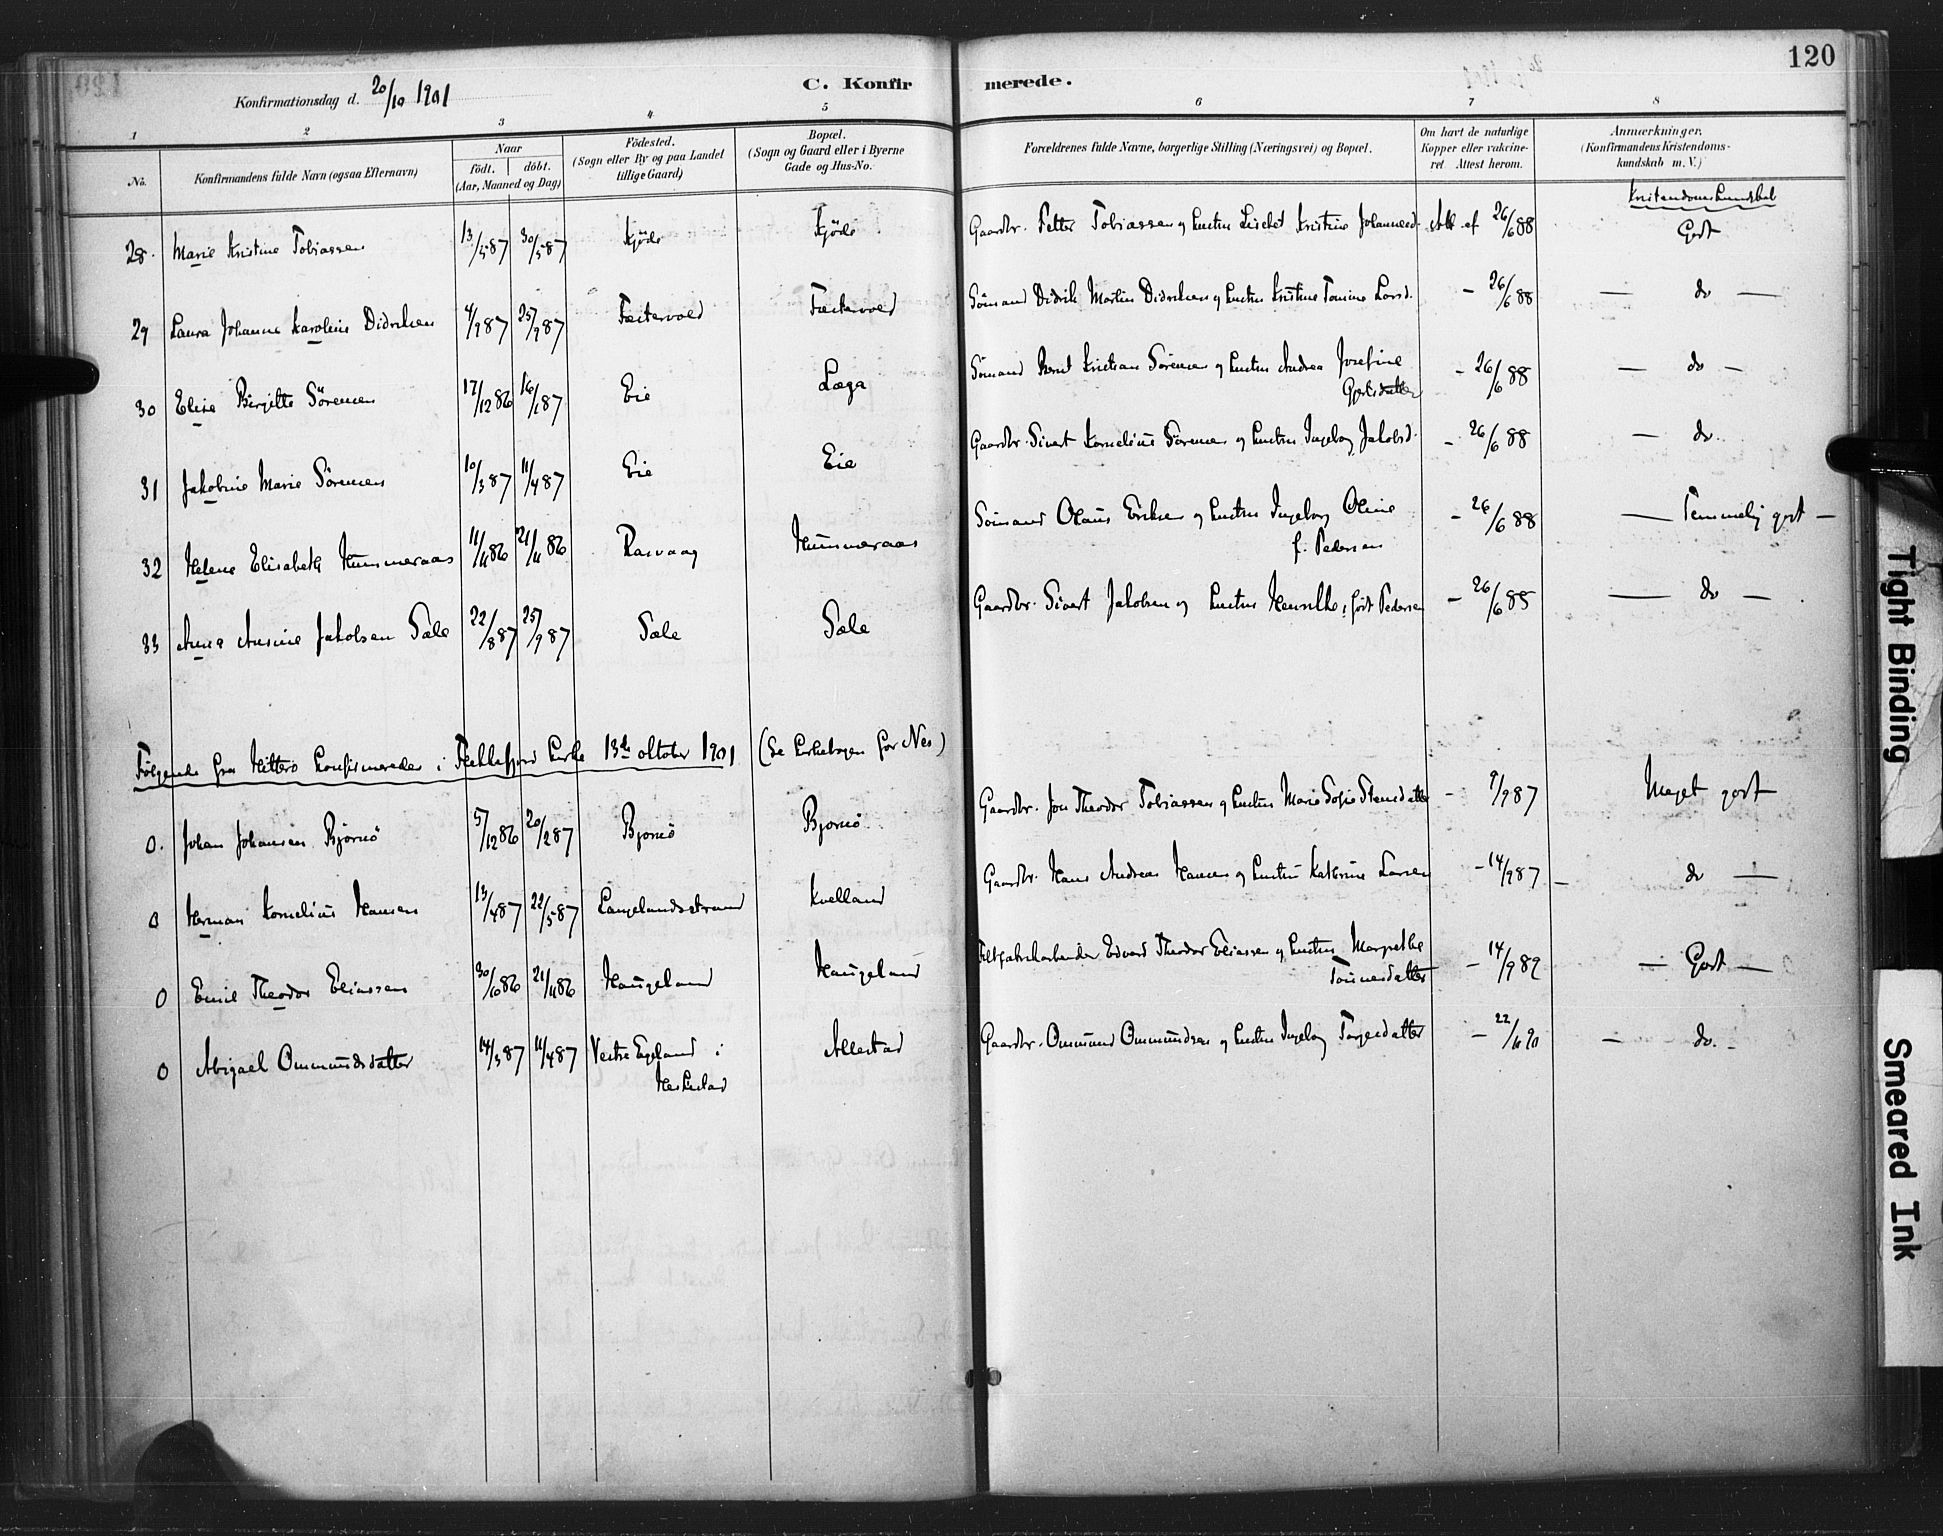 120
Konfirmationsdag d. 20/10 1901
C. Konfirmerede.
1 2 3 4 5 6 7 8
No.
Konfirmandens fulde Navn (ogsaa Efternavn)
Naar
födt. döbt.
(Aar, Maaned og Dag)
Födested.
(Sogn eller By og paa Landet
tillige Gaard)
Bopæl.
(Sogn og Gaard eller i Byerne
Gade og Hus-No.
Forældrenes fulde Navne, borgerlige Stilling (Næringsvei) og Bopæl.
Om havt de naturlige
Kopper eller vakcine-
ret Attest herom.
Anmærkninger.
(Konfirmandens Kristendoms-
kundskab m. V.)
Kristendomskundskab
28. Marie Kristine Tobiassen 13/5 87 30/5 87 Kjöde Kjöde Gaardbr. Petter Tobiassen og hustru Kristine Att. af 26/6 88 Godt
29 Laura Johanne Karoline Didriksen 4/9 87 25/9 87 Sömand Didrik Martin Didriksen og hustru Kristine Tomine Larsd. - 26/6 88 — do —
30 Elise Birgitte Sörensen 17/12 86 16/1 87 Eie Læga Sömand Bernt Kristian Sörensen og hustru Andrea Josefine
- 26/6 88 — do —
31 Jakobine Marie Sörensen 10/3 87 11/4 87 Eie Eie Gaardbr. Sivert Kornelius Sörensen og hustru Ingeborg Jakobsd. - 26/6 88 — do.
32 Helene Elisabeth Hummeraas 11/11 86 21/11 86 Rasvaag Hummeraas Sömand Olaus Eriksen og hustru Ingeborg Oline
f. Pedersen - 26/6 88 — Temmelig godt —
33 Anne Ansine Jakobsen Sæle 22/8 87 25/9 87 Sæle Sæle Gaardbr. Sivert Jakobsen og hustru født Pedersen - 26/6 88 — do —
Fölgende fra Hitterö konfirmerede i Fleklefjord Kirke 13de oktober 1901 (Se Kirkebogen for Nes)
0. Johan Johansen Bjørnö 5/12 86 20/2 87 Bjornö Bjornö Gaardbr. Jon Theodor Tobiassen og hustru Marie Sofie Stensdatter - 9/9 87 Meget godt
0 Herman Kornelius Hansen 13/4 87 22/5 87 Langelandsstrand Kvelland Gaardbr. Hans Andreas Hansen og hustru Katherine Larsen - 14/9 87 — do —
0 Emil Theodor Eliassen 30/10 86 21/11 86 Haugeland Haugeland Edvard Theodor Eliassen og hustru Margrethe
Tönnesdatter - 14/9 89 — Godt —
0 Abigael Ommundsdatter 14/3 87 11/4 87 Vestre Egeland i
Heskestad Allestad Gaardbr. Ommund Ommundsen og hustru Ingeborg Torgersdatter - 22/11 90 — do. —
Tight Binding
Smeared Ink